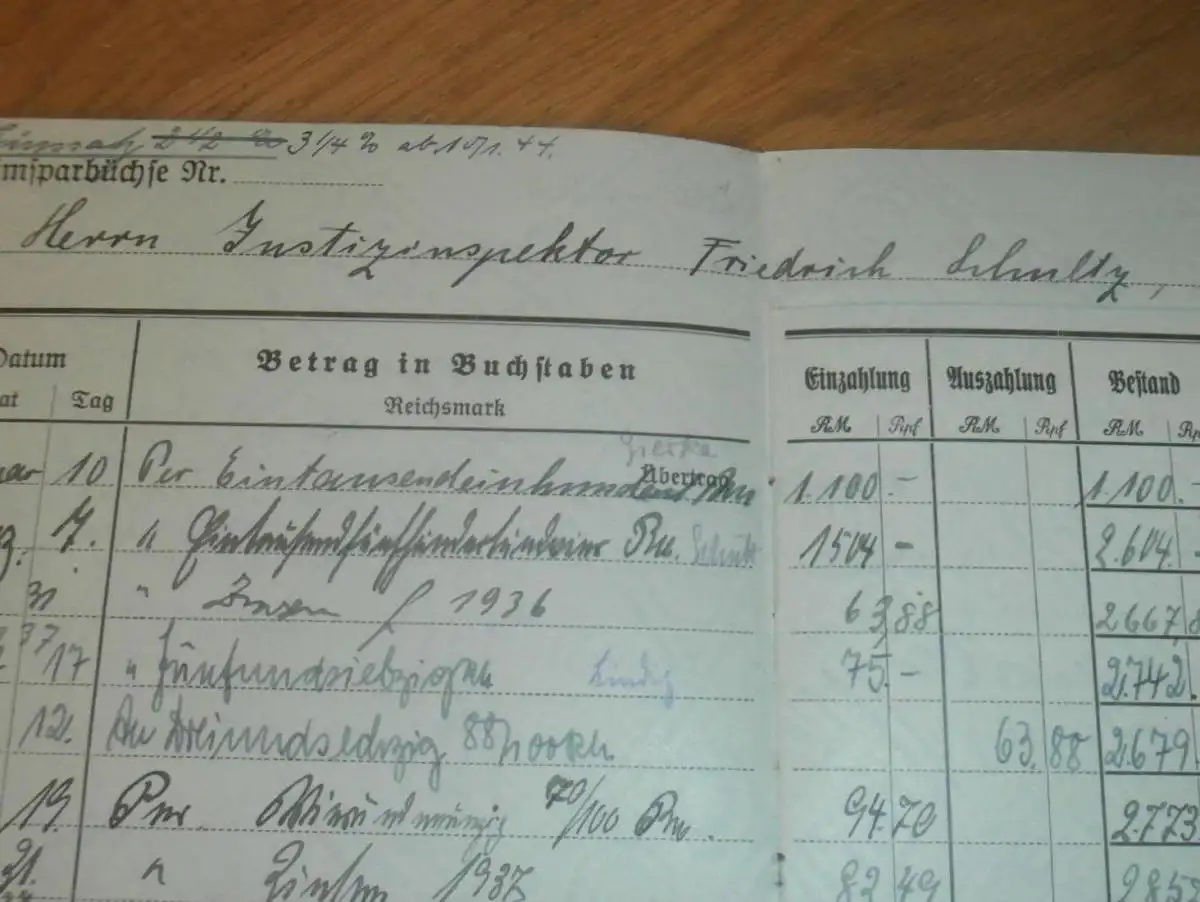 Zinssatz 2 1/2 % 3 1/4 % ab 1.1.44.
msparbüchse Nr.
Herrn Justizinspektor Friedrich Schultz,
Datum Betrag in Buchstaben Einzahlung Auszahlung Bestand
at Tag Reichsmark RM Rpf RM Rpf RM Rp
Übertrag
ar 10 Per Eintausendeinhundert Rm 1.100.- 1.100.-
g. 7. " Eintausendfünfhundertundvier Rm. Schultz 1504 - 2.604.-
31 " Zinsen f 1936 63,88 2667,8
37 17 " Fünfundsiebzig Rm 75.- 2.742.
12. An Dreiundsechzig 88/100 Rm 63.88 2.679.
19. Per Vierundneunzig 70/100 Rm. 94.70 2.773
31. " Zinsen 1937 82 49 285